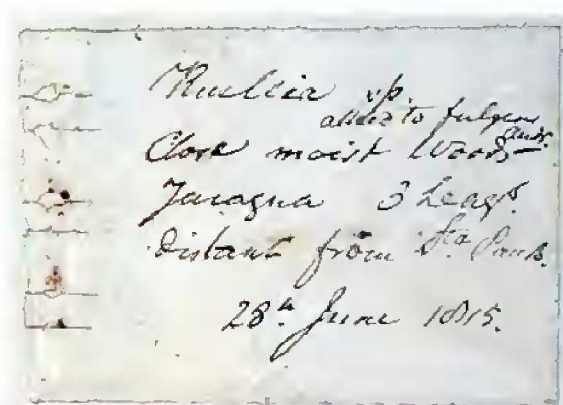 Ruellia sp.
allied to fulgens Andr.
Close moist Woods
Jaragua 3 Leags.
distant from Sto. Paulo.
28th June 1815.